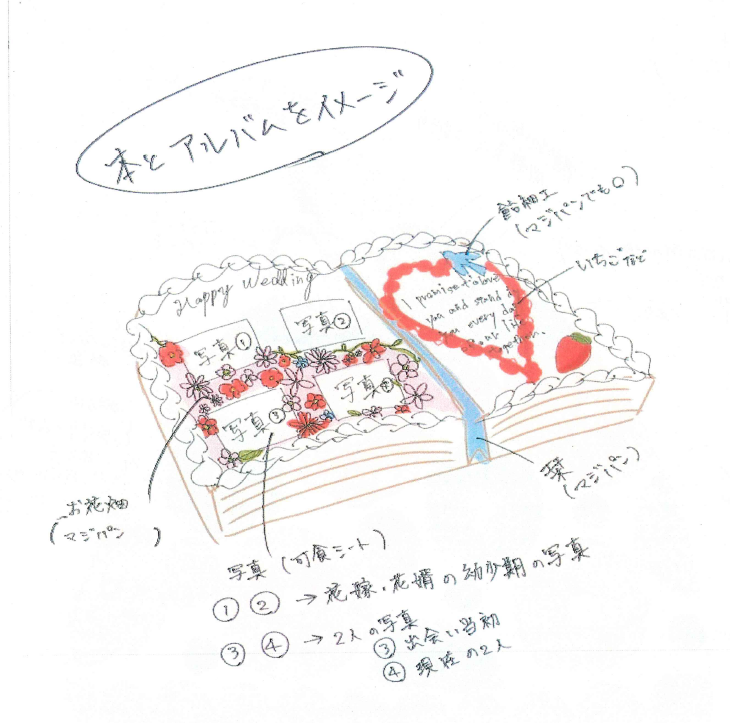 本とアルバムをイメージ
飴細工
(マジパンでも○)
いちごなど
Happy Wedding
I promise
you and stand
every day
our life
写真①
写真②
写真③
写真④
お花畑
(マジパン)
栞
(マジパン)
写真(可食シート)
① ② → 花嫁・花婿の幼少期の写真
③ ④ → 2人の写真
③ 出会い当初
④ 現在の2人